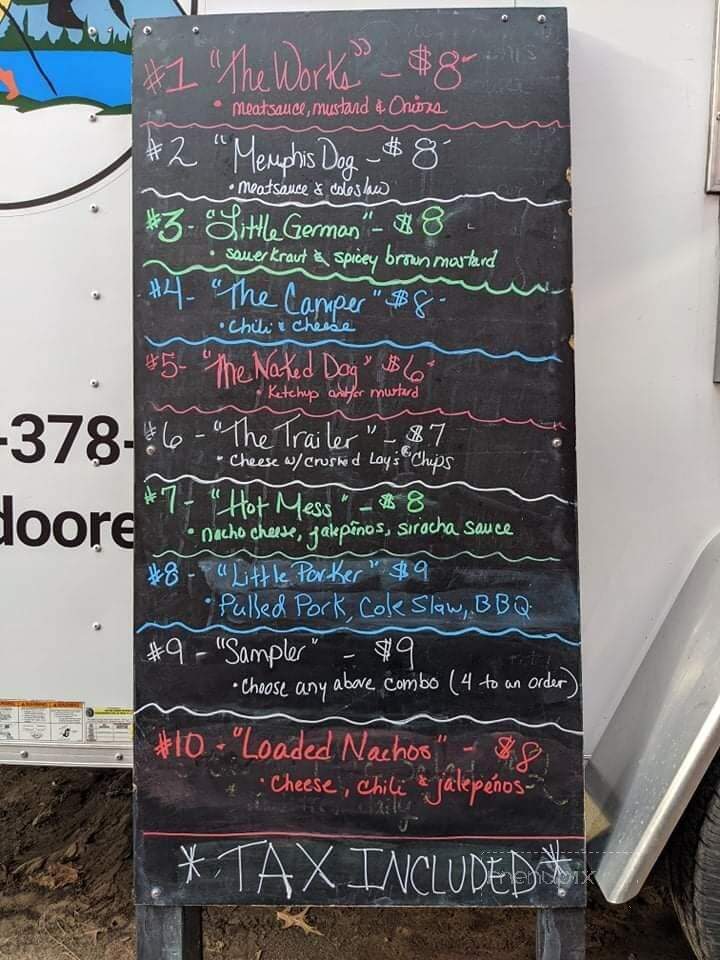 #1 "The Works" - $8
• meatsauce, mustard & Onions
#2 "Memphis Dog - $8
• meatsauce & coleslaw
#3 - "Little German" - $8
• sauerkraut & spicey brown mustard
#4 - "The Camper" $8
• Chili & Cheese
#5 - "The Naked Dog" $6
• Ketchup and/or mustard
#6 - "The Trailer" - $7
• Cheese w/crushed Lay's Chips
#7 - "Hot Mess" - $8
• nacho cheese, jalepeños, siracha sauce
#8 - "Little Porker" $9
• Pulled Pork, Cole Slaw, BBQ
#9 - "Sampler" - $9
• Choose any above combo (4 to an order)
#10 - "Loaded Nachos" - $8
• Cheese, chili & jalepeños
* TAX INCLUDED *
-378-
doore
menupix